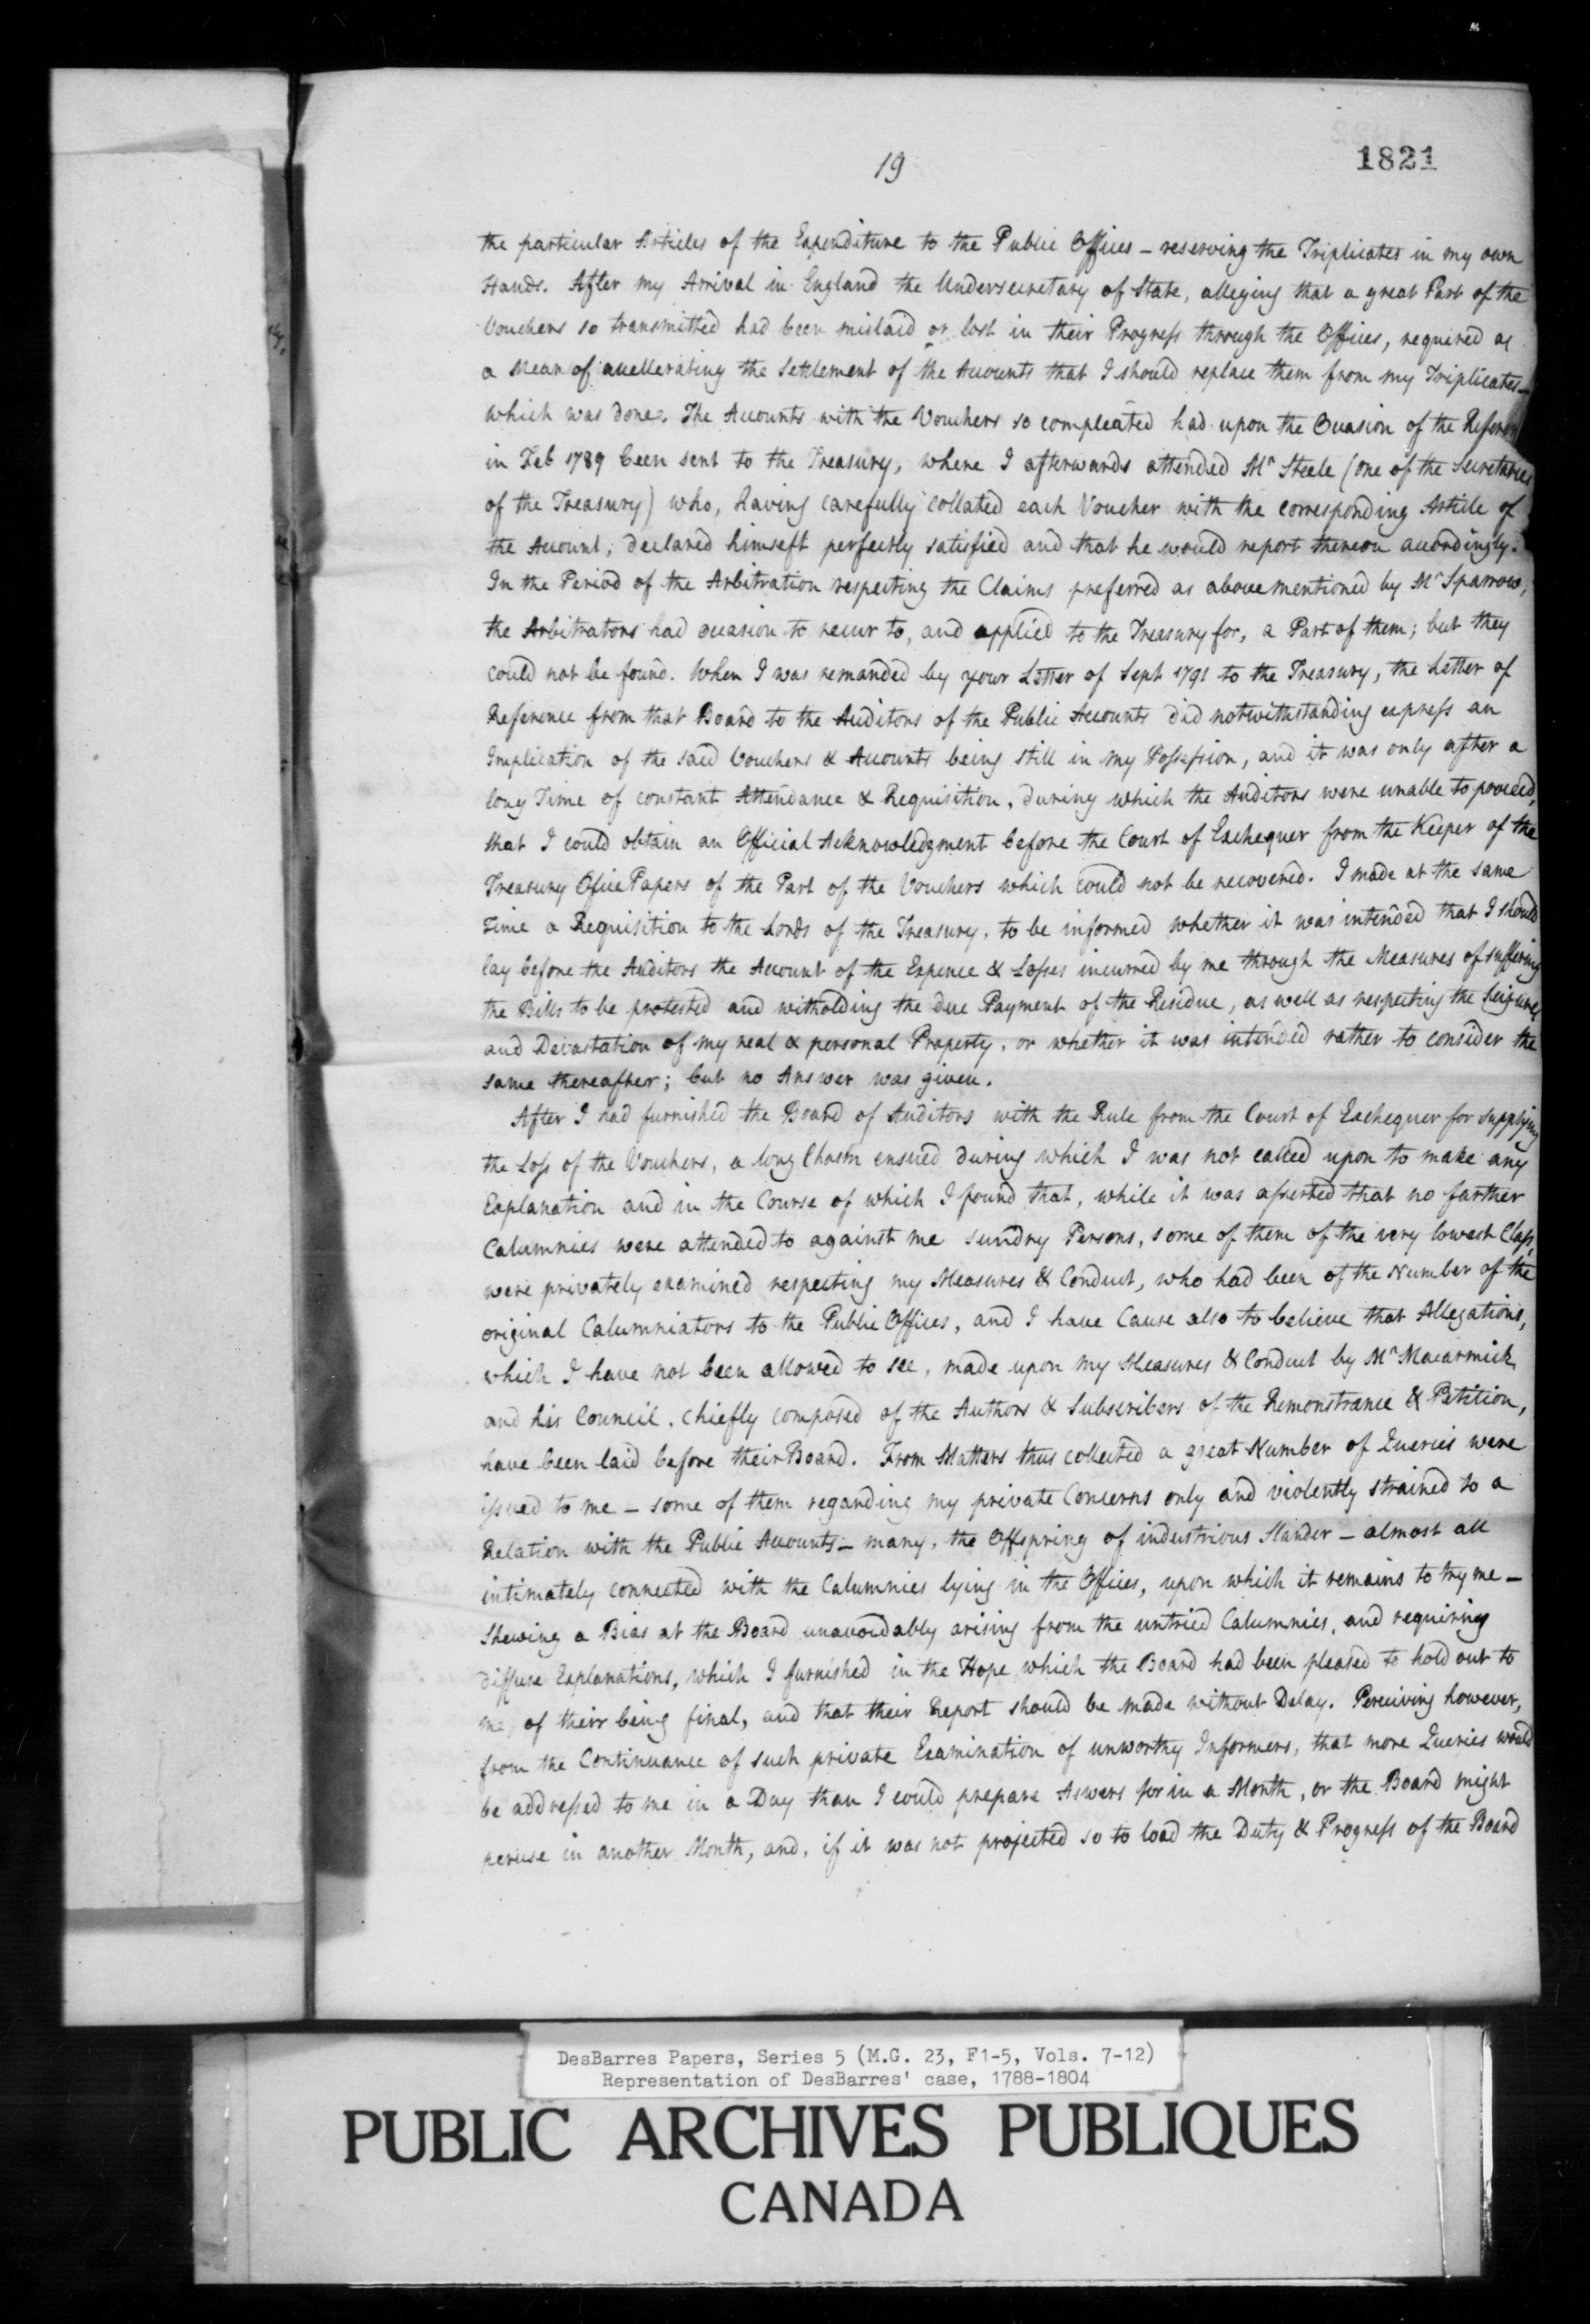 19
1821
the particular Articles of the Expenditure to the Public Offices – reserving the Triplicates in my own
Hands. After my Arrival in England the Undersecretary of State, alleging that a great Part of the
Vouchers so transmitted had been mislaid or lost in their Progress through the Offices, required as
a Mean of accellerating the Settlement of the Accounts that I should replace them from my Triplicates –
which was done. The Accounts with the Vouchers so compleated had upon the Occasion of the
in Feb 1789 been sent to the Treasury, where I afterwards attended Mr Steele (one of the Secretaries
of the Treasury) who, having carefully collated each Voucher with the corresponding Article of
the Account, declared himself perfectly satisfied and that he would report thereon accordingly.
In the Period of the Arbitration respecting the Claims preferred as abovementioned by Mr Sparrow,
the Arbitrators had occasion to recur to, and applied to the Treasury for, a Part of them; but they
could not be found. When I was remanded by your Letter of Sept 1791 to the Treasury, the Letter of
Reference from that Board to the Auditors of the Public Accounts did notwithstanding express an
Implication of the said Vouchers & Accounts being still in my Possession, and it was only after a
long Time of constant Attendance & Requisition, during which the Auditors were unable to proceed,
that I could obtain an Official Acknowledgment before the Court of Exchequer from the Keeper of the
Treasury Ofice Papers of the Part of the Vouchers which could not be recovered. I made at the same
Time a Requisition to the Lords of the Treasury, to be informed whether it was intended that I should
lay before the Auditors the Account of the Expence & Losses incurred by me through the Measures of suffering
the Bills to be protested and witholding the due Payment of the Residue, as well as respecting the Seizures
and Devastation of my real & personal Property, or whether it was intended rather to consider the
same thereafter; but no Answer was given.
After I had furnished the Board of Auditors with the Rule from the Court of Exchequer for supplying
the Loss of the Vouchers, a long Chasm ensued during which I was not called upon to make any
Explanation and in the Course of which I found that, while it was asserted that no farther
Calumnies were attended to against me sundry Persons, some of them of the very lowest Class,
were privately examined respecting my Measures & Conduct, who had been of the Number of the
original Calumniators to the Public Offices, and I have Cause also to believe that Allegations,
which I have not been allowed to see, made upon my Measures & Conduct by Mr Macarmick
and his Council, chiefly composed of the Authors & Subscribers of the Remonstrance & Petition,
have been laid before their Board. From Matters thus collected a great Number of Queries were
issued to me – some of them regarding my private Concerns only and violently strained to a
Relation with the Public Accounts – many, the Offspring of industrious Slander – almost all
intimately connected with the Calumnies lying in the Offices, upon which it remains to try me –
Shewing a Bias at the Board unavoidably arising from the untried Calumnies, and requiring
diffuse Explanations, which I furnished in the Hope which the Board had been pleased to hold out to
me of their being final, and that their Report should be made without Delay. Perceiving however,
from the Continuance of such private Examination of unworthy Informers, that more Queries would
be addressed to me in a Day than I could prepare Aswers for in a Month, or the Board might
peruse in another Month, and, if it was not projected so to load the Duty & Progress of the Board
DesBarres Papers, Series 5 (M.G. 23, F1-5, Vols. 7-12)
Representation of DesBarres' case, 1788-1804
PUBLIC ARCHIVES PUBLIQUES
CANADA